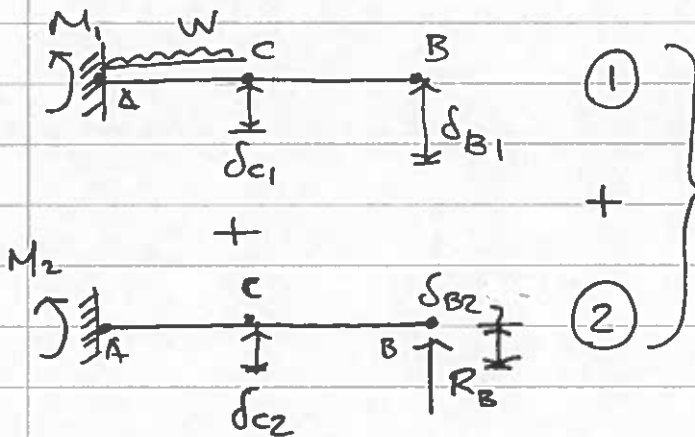 M₁ W
C B ①
A
δc₁ δB₁
+ +
M₂
C δB2 ②
A B
δc₂ R_B